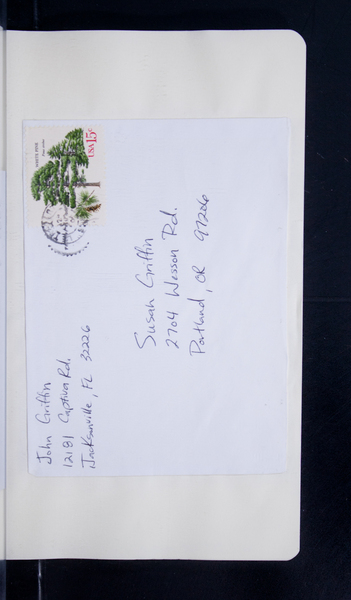 John Griffin
12181 Captiva Rd.
Jacksonville, FL 32226
WHITE PINE
USA 15c
Susan Griffin
2704 Wesson Rd.
Portland, OR 97206